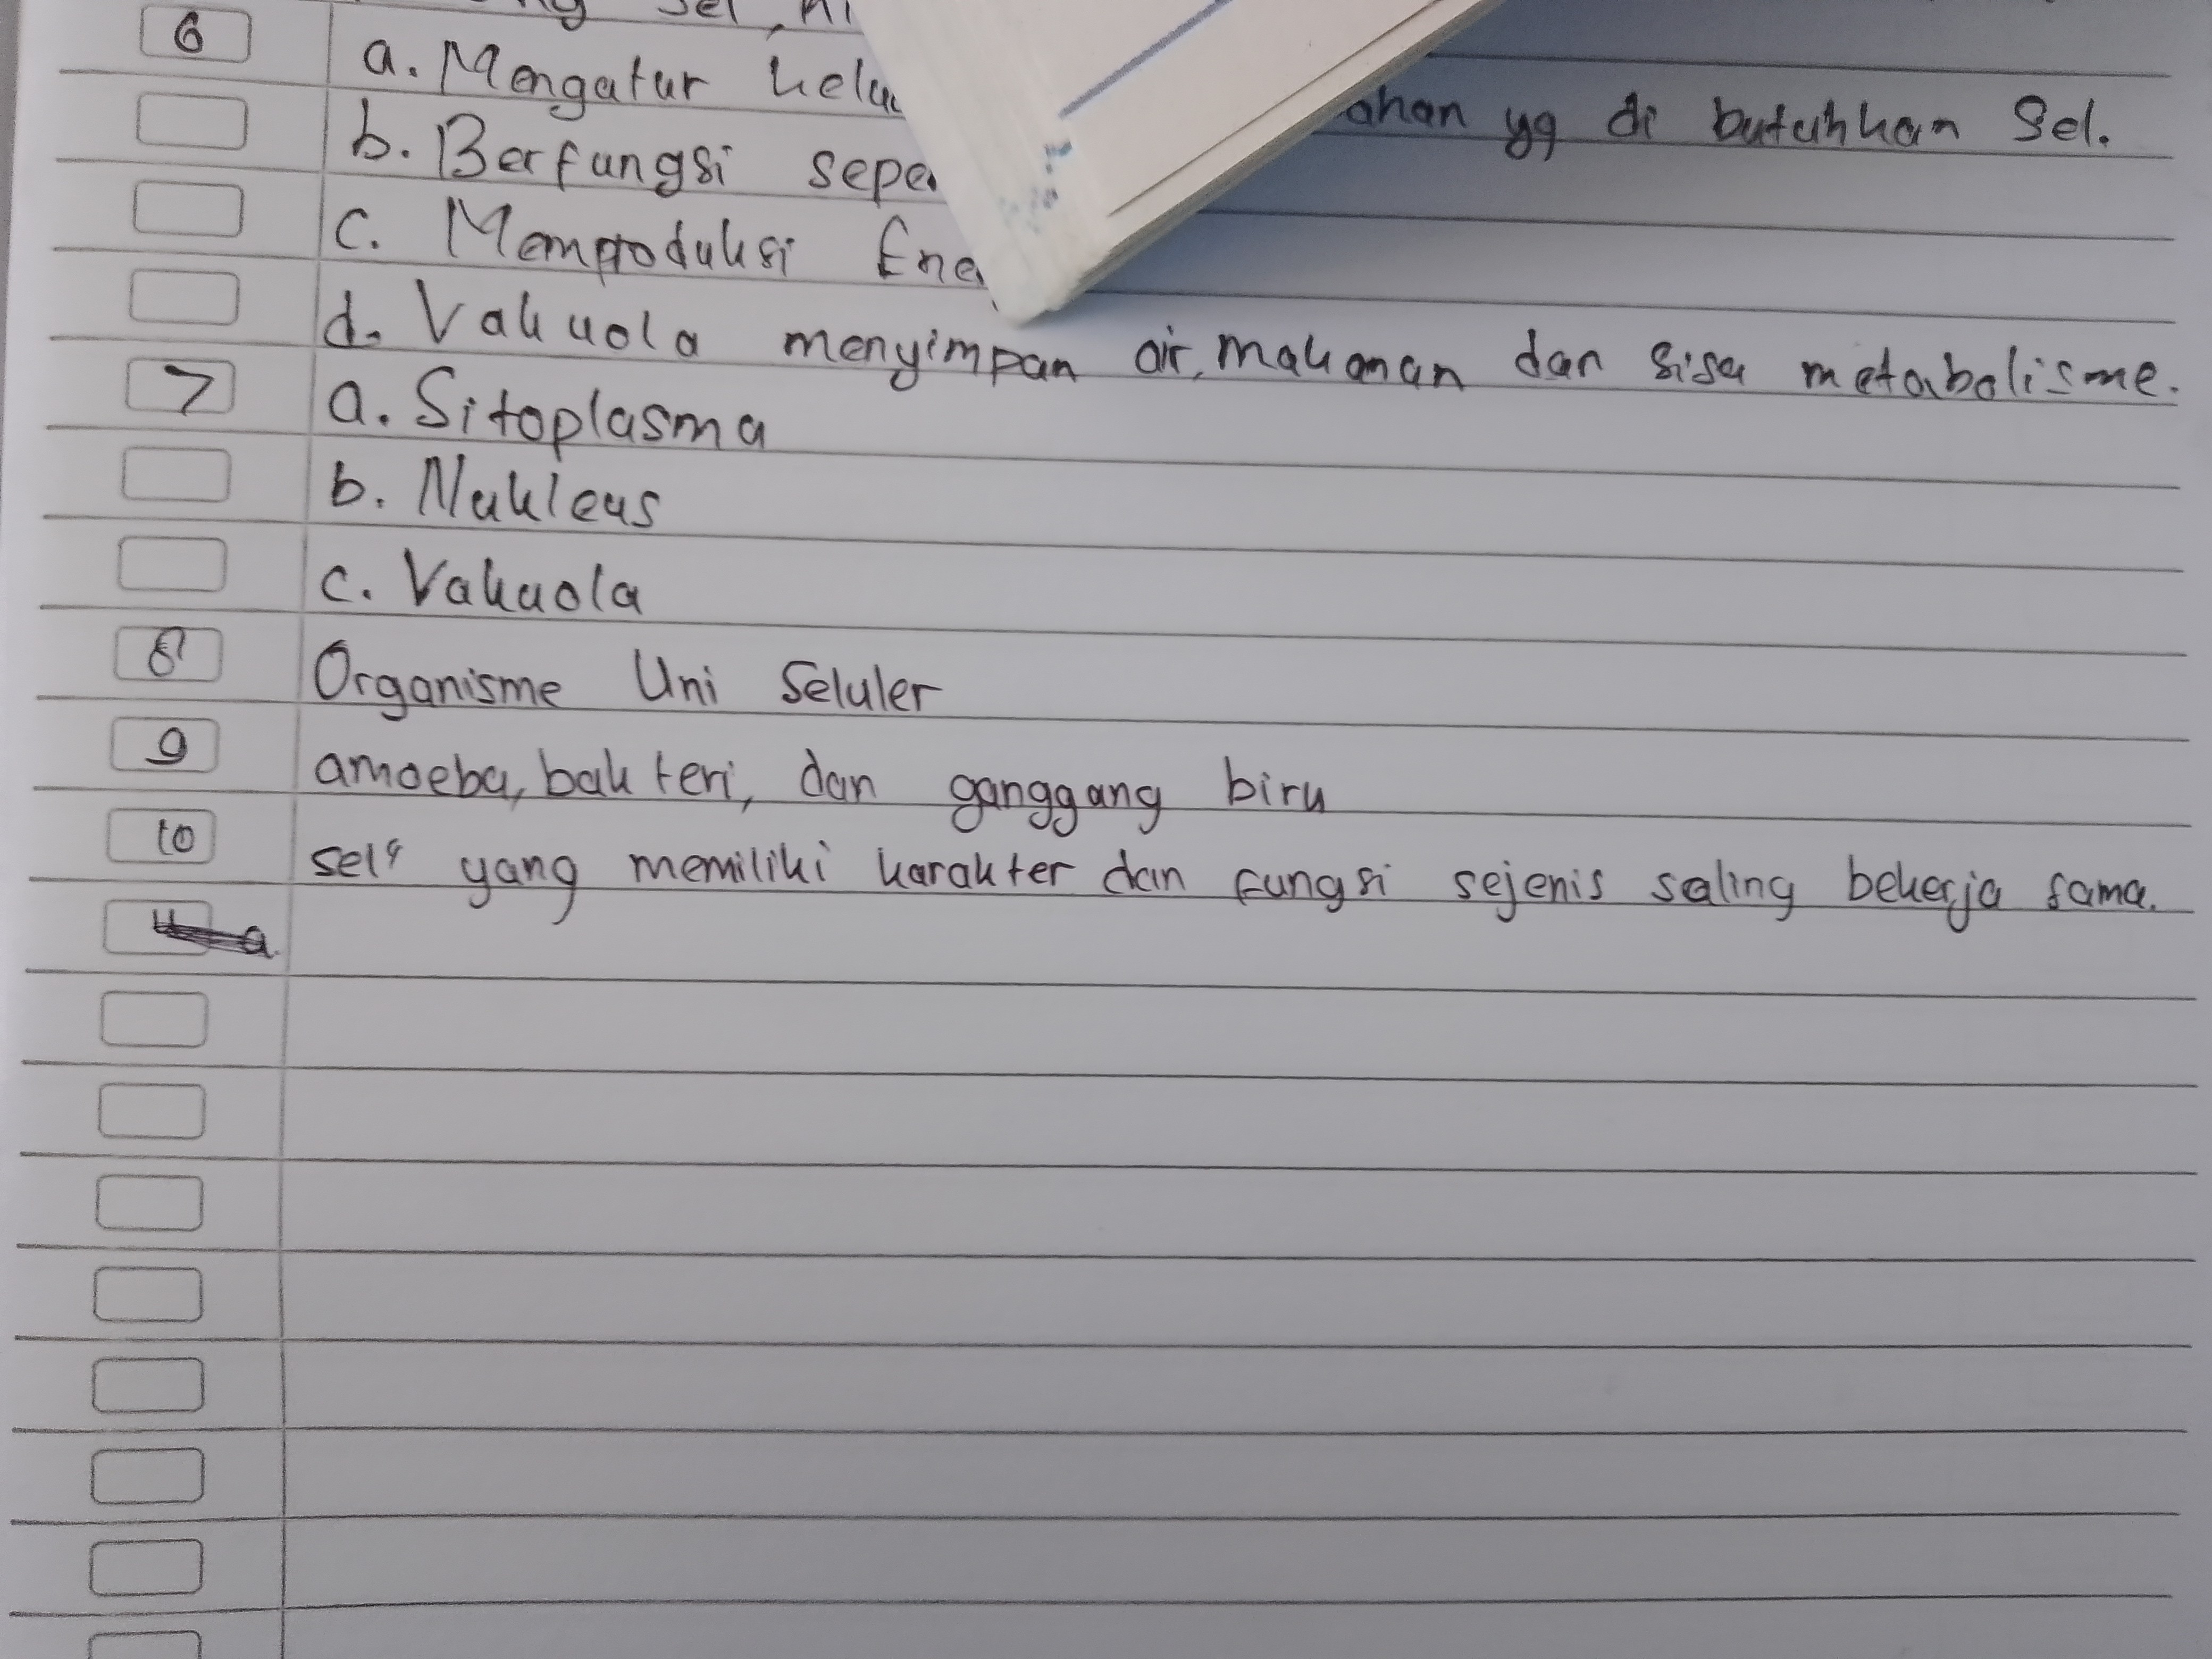 sel,
6 a. Mengatur
yg di butuhkan Sel.
b. Berfungsi
c. Memproduksi
d. Vakuola menyimpan air, makanan dan sisa metabolisme.
7 a. Sitoplasma
b. Nukleus
c. Vakuola
8 Organisme Uni Seluler
9 amoeba, bakteri, dan ganggang biru
10 sel" yang memiliki karakter dan fungsi sejenis saling bekerja sama.